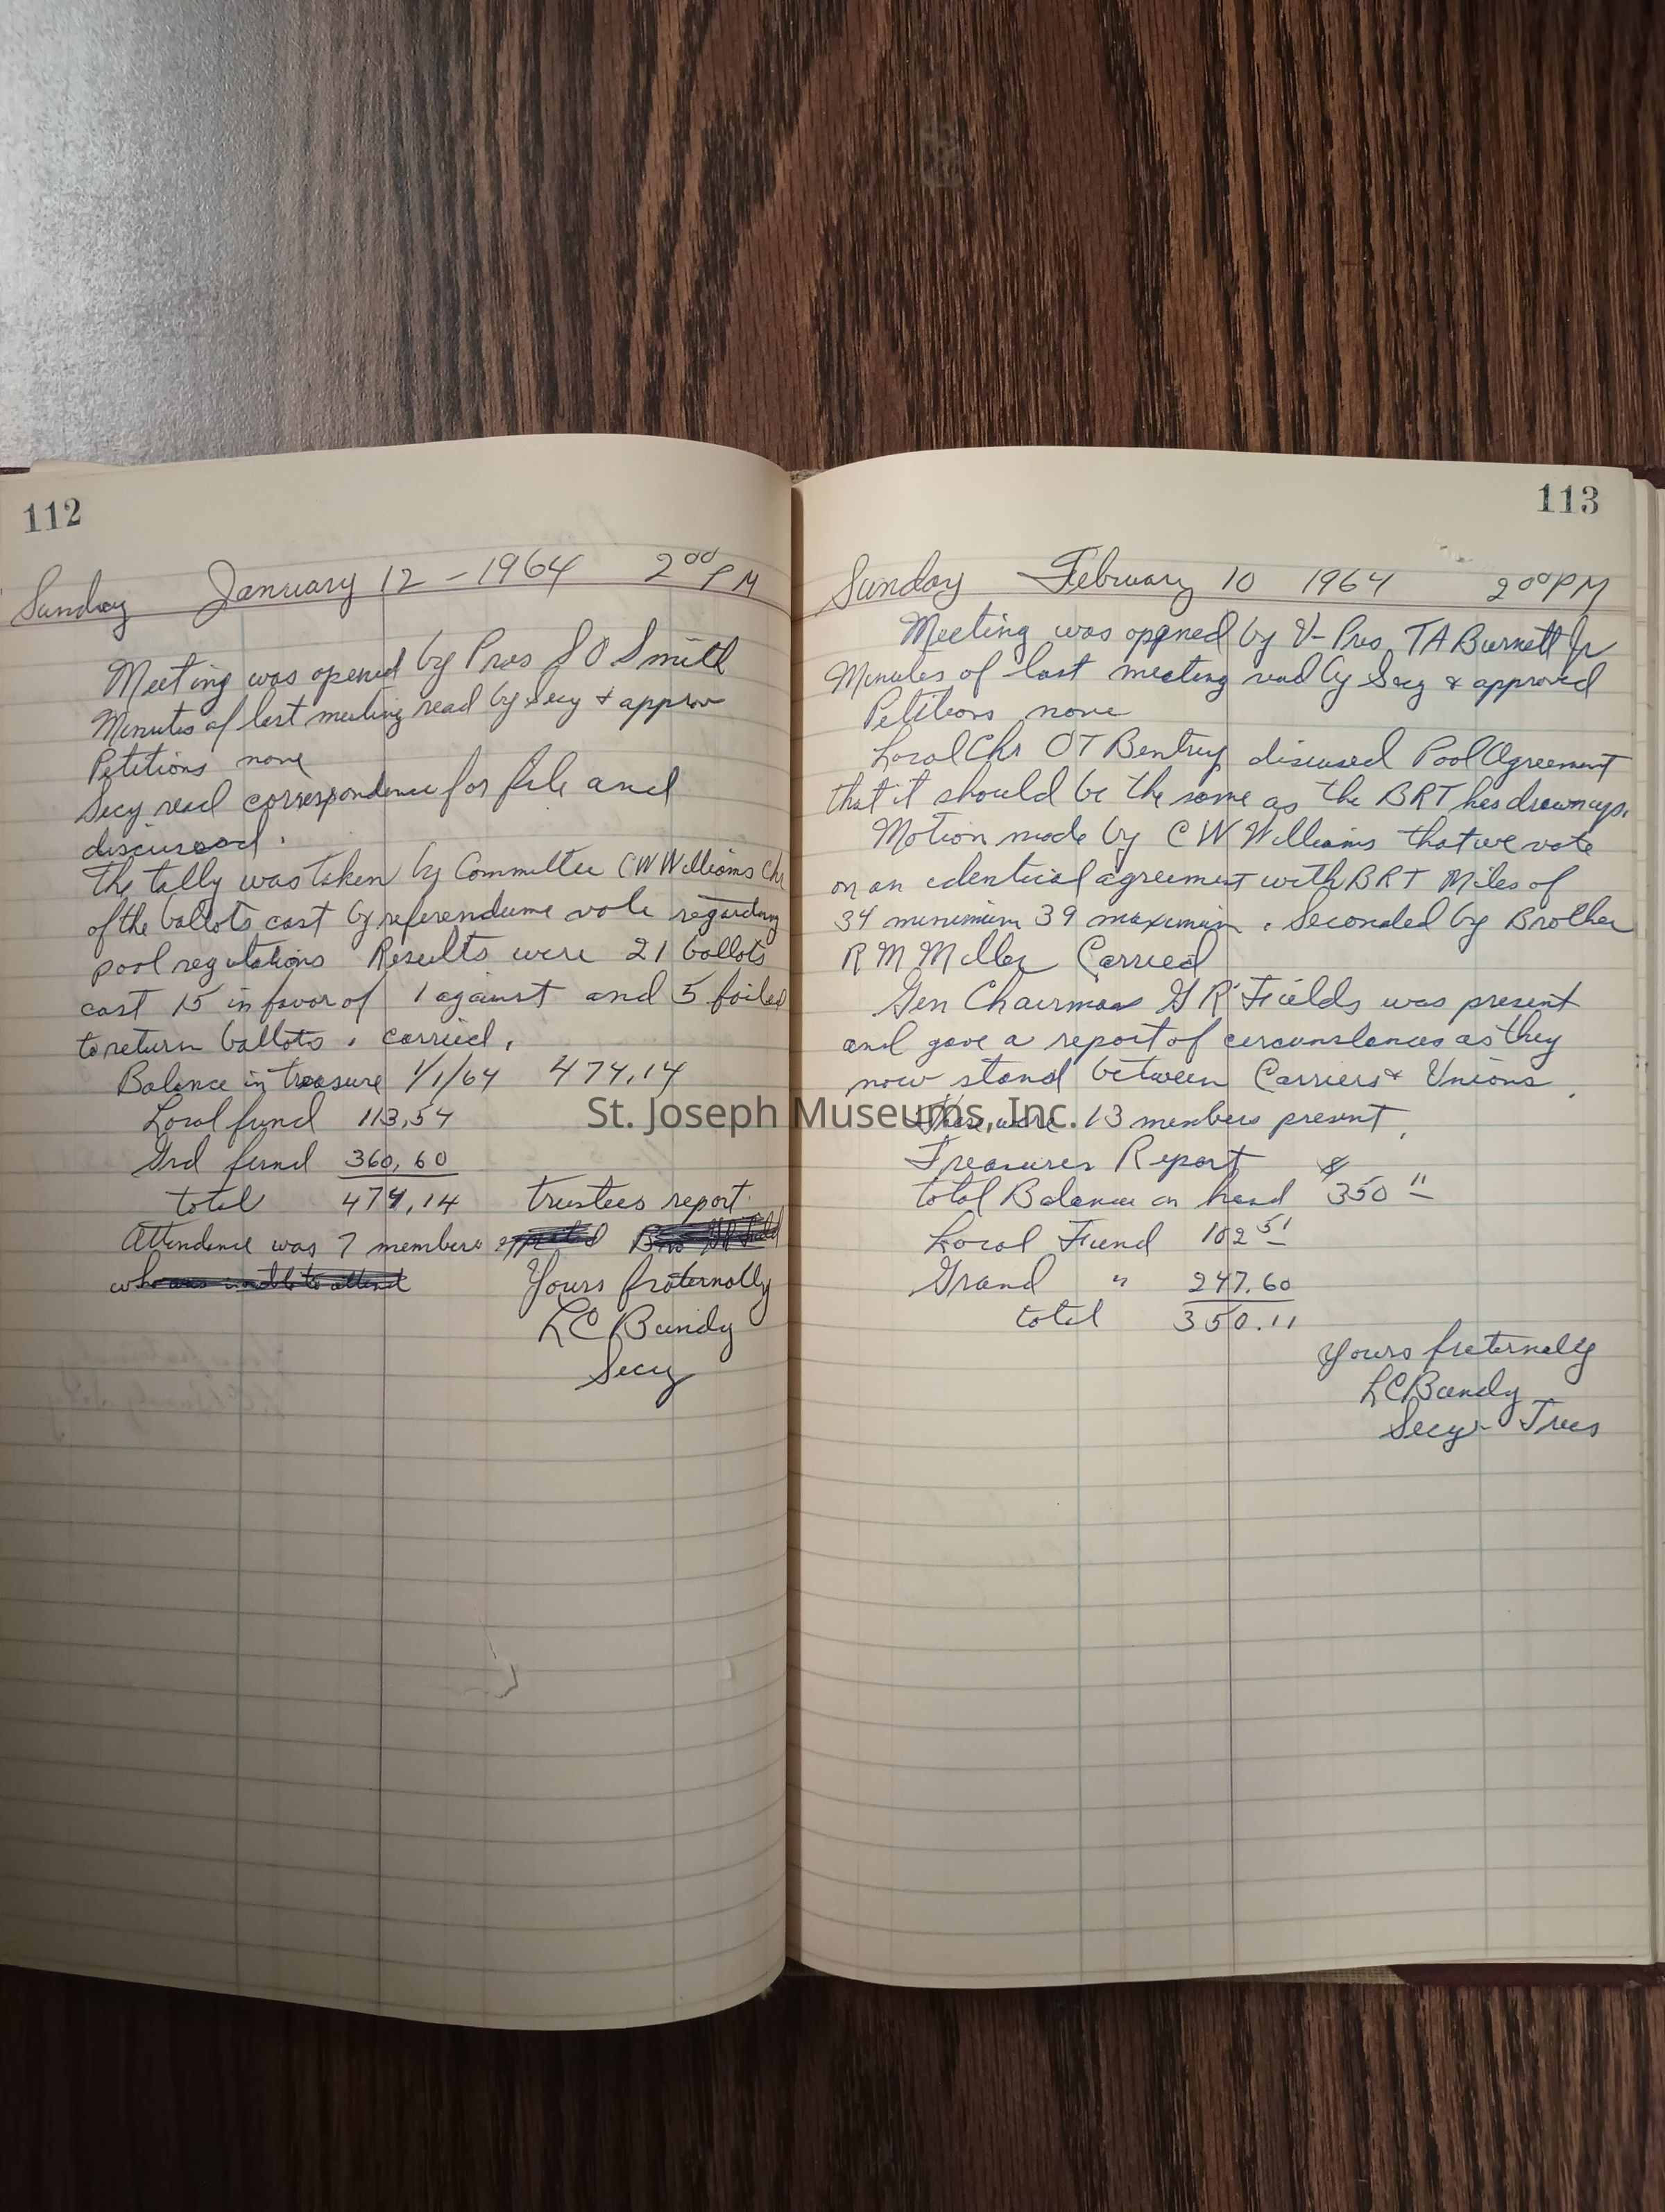 112
Sunday January 12 - 1964 2 00 PM
Meeting was opened by Pres J O Smith
Minutes of last meeting read by Secy & approv
Petitions none
Secy read correspondence for file and
discussed.
The tally was taken by Committee CW Williams Chr
of the ballots cast by referendume vote regarding
pool regulations Results were 21 ballots
cast 15 in favor of 1 against and 5 failed
to return ballots. carried.
Balance in treasure 1/1/64 474,14
Local fund 113,54
Grd fund 360,60
total 474,14 trustees report
Attendence was 7 members
who was unable to attend
Yours fraternally
LC Bundy
Secy
113
Sunday February 10 1964 2 00 PM
Meeting was opened by V-Pres TA Burnett Jr
Minutes of last meeting read by Secy & approved
Petitions none
Local Chr OT Bentrup discused Pool Agreement
that it should be the same as the BRT has drawn up.
Motion made by C W Williams that we vote
on an identical agreement with BRT Miles of
34 minimum 39 maximum. Seconded by Brother
R M Miller Carried
Gen Chairman G R Fields was present
and gave a report of circumstances as they
now stand between Carriers & Unions.
There were 13 members present.
Treasures Report
total Balance on hand $350 11
Local Fund 102 51
Grand " 247.60
total 350.11
Yours fraternally
LC Bundy
Secy - Tres
St. Joseph Museums, Inc.